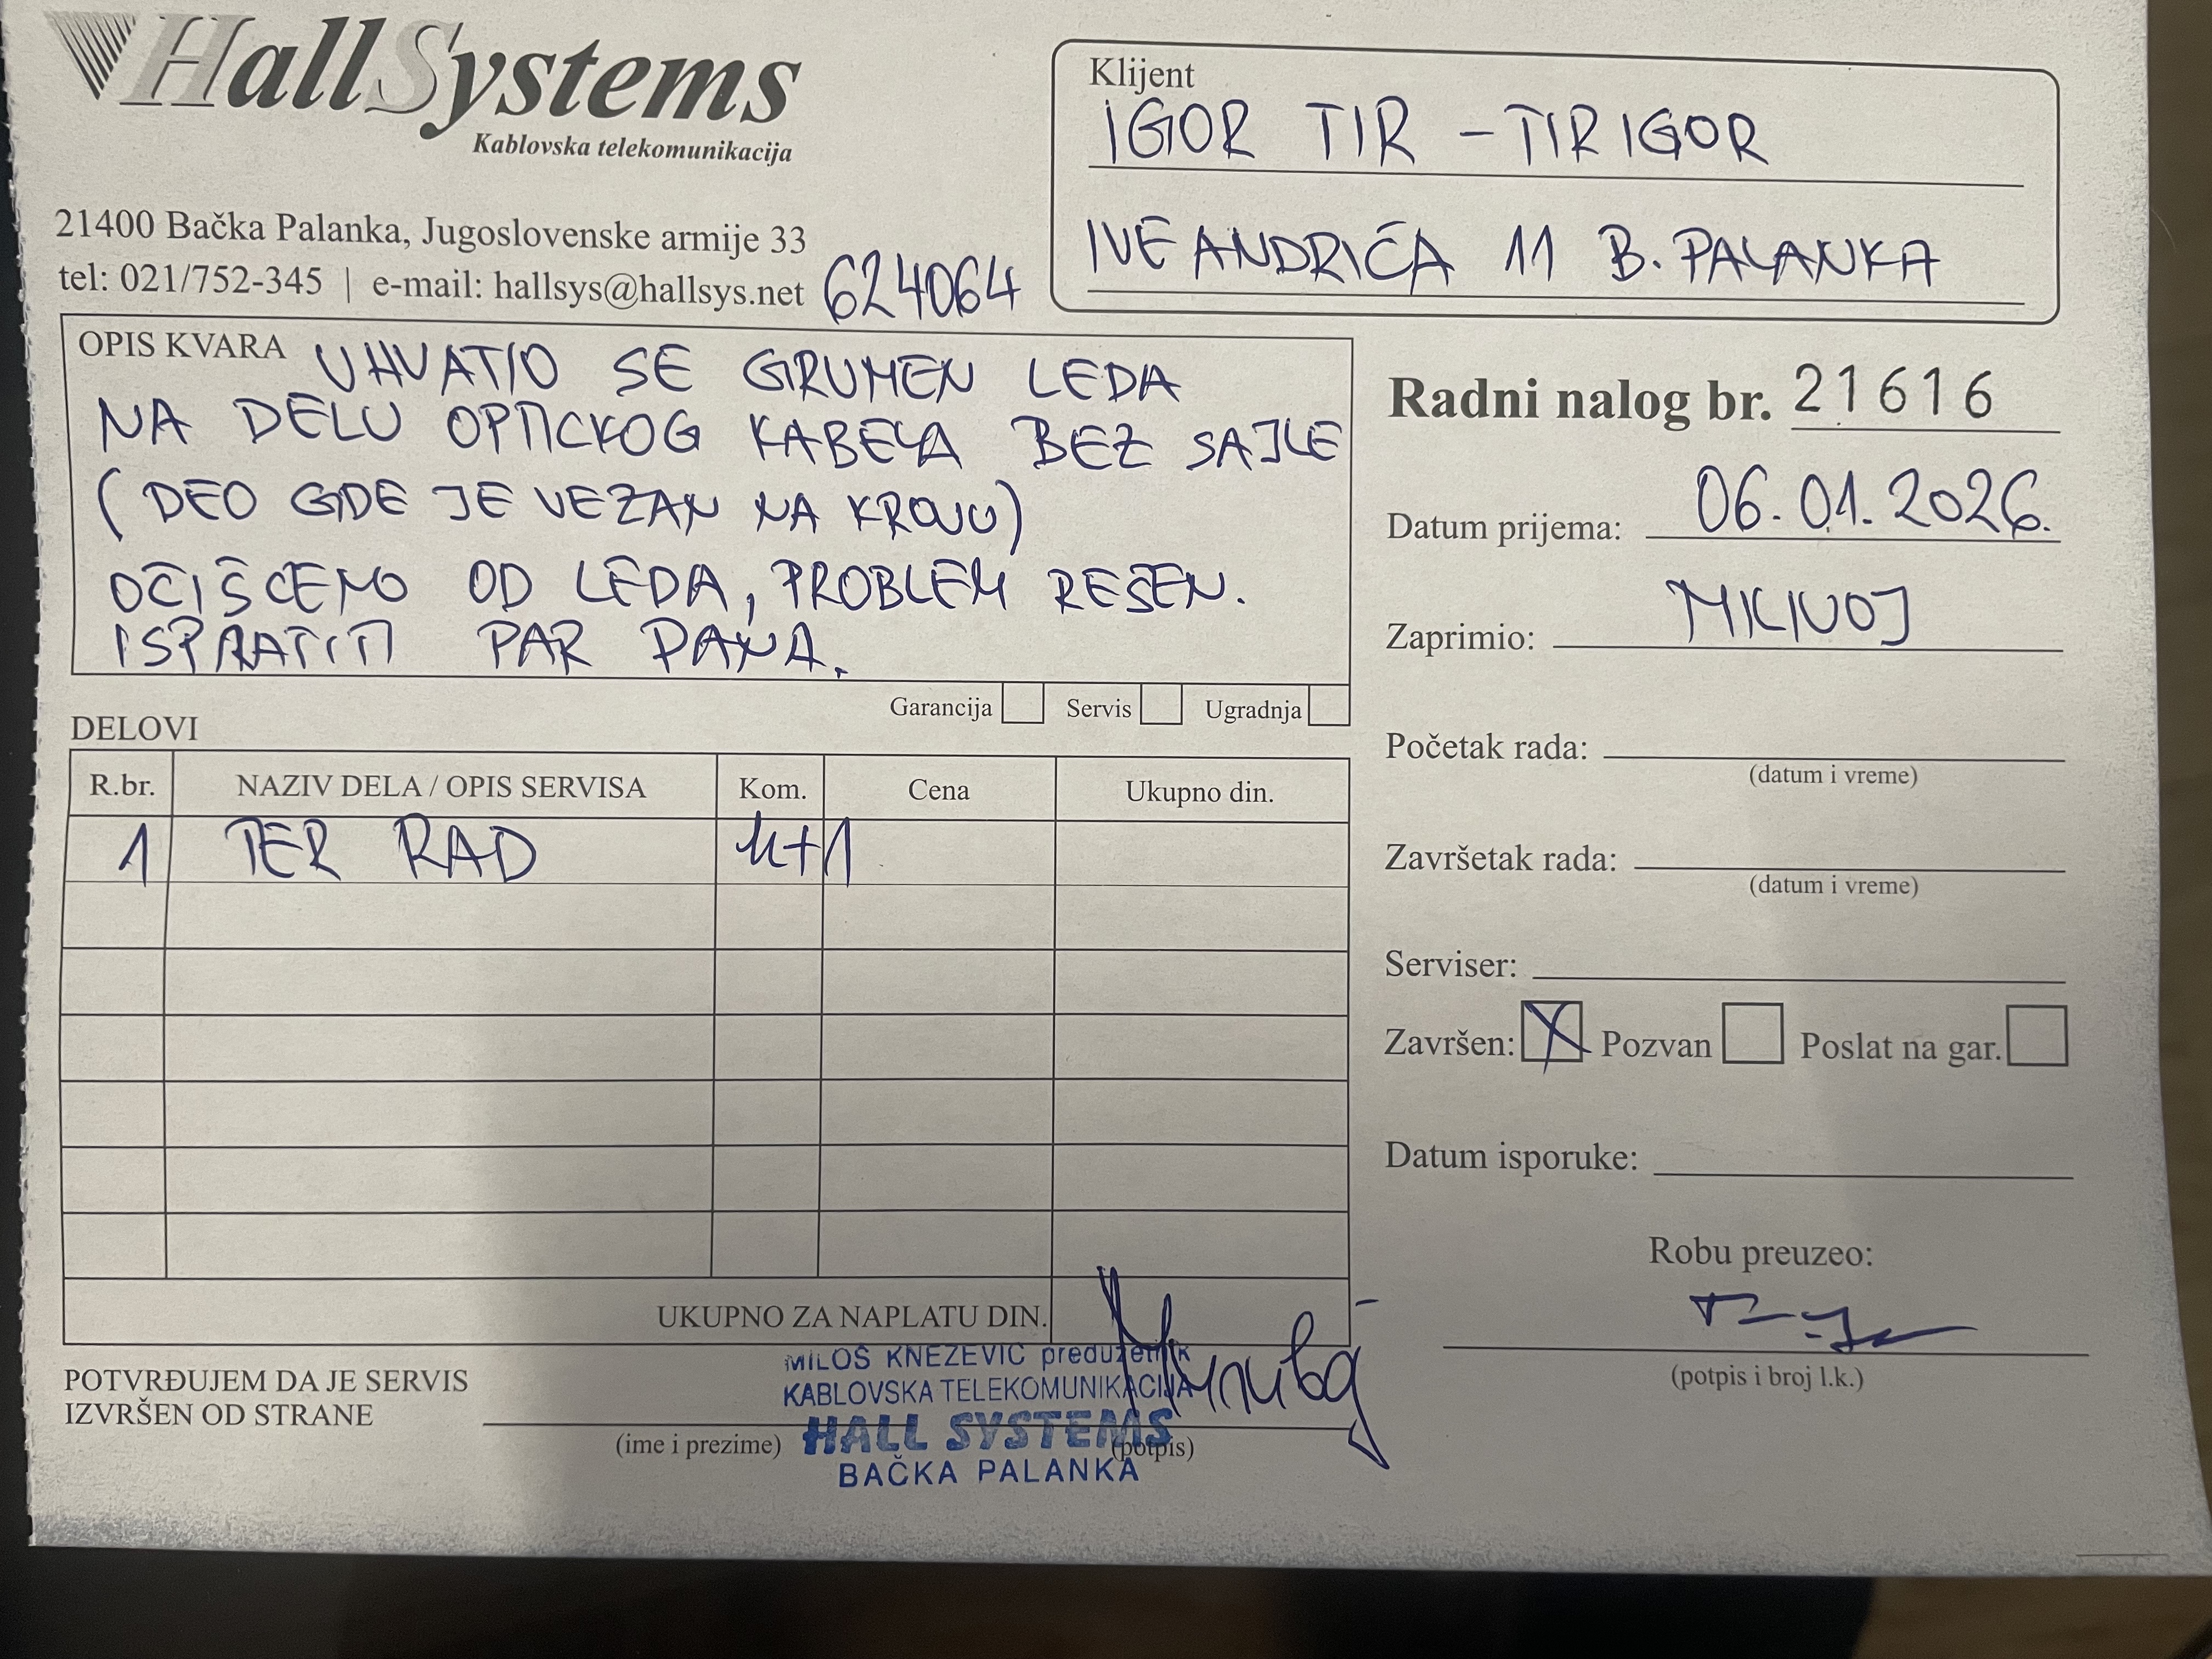 HallSystems
Kablovska telekomunikacija
21400 Bačka Palanka, Jugoslovenske armije 33
tel: 021/752-345 | e-mail: hallsys@hallsys.net
624064
Klijent
IGOR TIR - TIR IGOR
IVE ANDRIĆA 11 B. PALANKA
OPIS KVARA UHVATIO SE GRUMEN LEDA
NA DELU OPTICKOG KABELA BEZ SAJLE
(DEO GDE JE VEZAN NA KROVU)
OČIŠĆENO OD LEDA, PROBLEM REŠEN.
ISPRATITI PAR DANA.
Garancija Servis Ugradnja
Radni nalog br. 21616
Datum prijema: 06.01.2026.
Zaprimio: MILIVOJ
Početak rada:
(datum i vreme)
Završetak rada:
(datum i vreme)
Serviser:
Završen: X Pozvan Poslat na gar.
Datum isporuke:
Robu preuzeo:
(potpis i broj l.k.)
DELOVI
R.br. NAZIV DELA / OPIS SERVISA Kom. Cena Ukupno din.
1 TER RAD
UKUPNO ZA NAPLATU DIN.
POTVRĐUJEM DA JE SERVIS
IZVRŠEN OD STRANE
(ime i prezime) (potpis)
MILOŠ KNEŽEVIĆ preduzetnik
KABLOVSKA TELEKOMUNIKACIJA
HALL SYSTEMS
BAČKA PALANKA